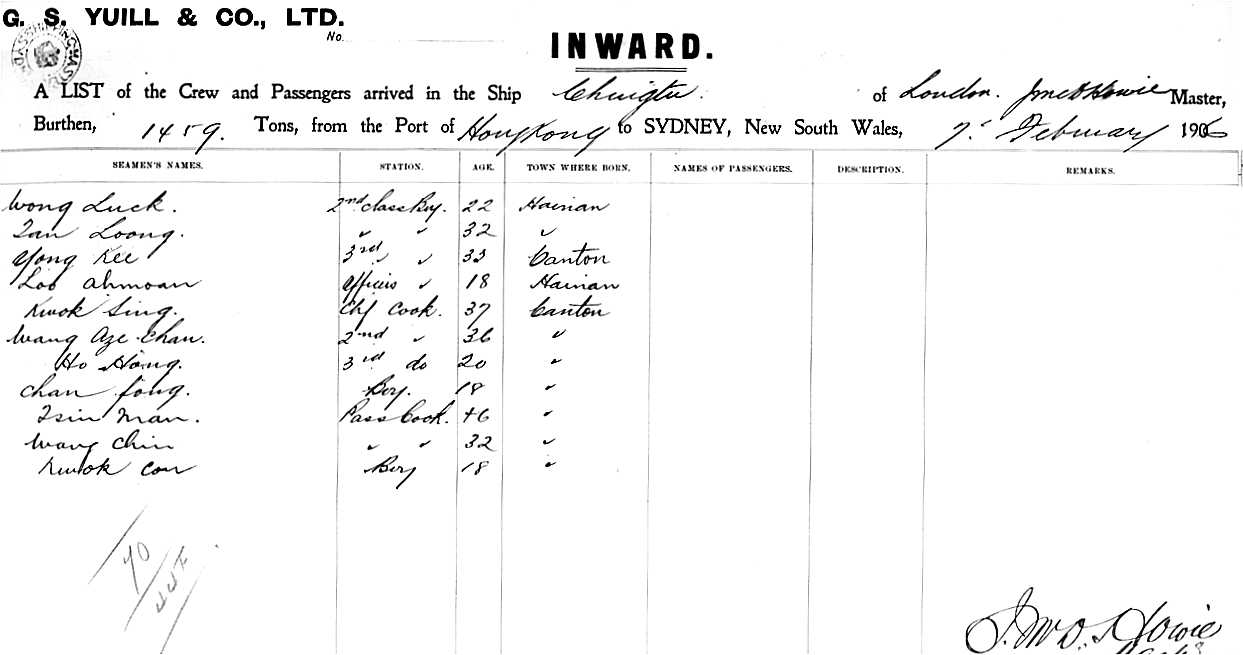 G. S. YUILL & CO., LTD.
No.
INWARD.
A LIST of the Crew and Passengers arrived in the Ship Chingtu. of London. Howie Master,
Burthen, 1459. Tons, from the Port of HongKong to SYDNEY, New South Wales, 7. February 1906
SEAMEN'S NAMES. STATION. AGE. TOWN WHERE BORN. NAMES OF PASSENGERS. DESCRIPTION. REMARKS.
Wong Luck. 2nd class Boy. 22 Hainan
Tan Loong. " " 32 "
Yong Kee 3rd " " 33 Canton
Loo Ahmoan officers " 18 Hainan
Kwok Sing. Chf Cook. 37 Canton
Wang Aze Chan. 2nd " 36 "
Ho Hong. 3rd do 20 "
Chan Fong. Boy. 18 "
Tsin Man. Pass Cook. 46 "
Wang Chin " " 32 "
Kwok Con Boy 18 "
70
J. McD. Howie